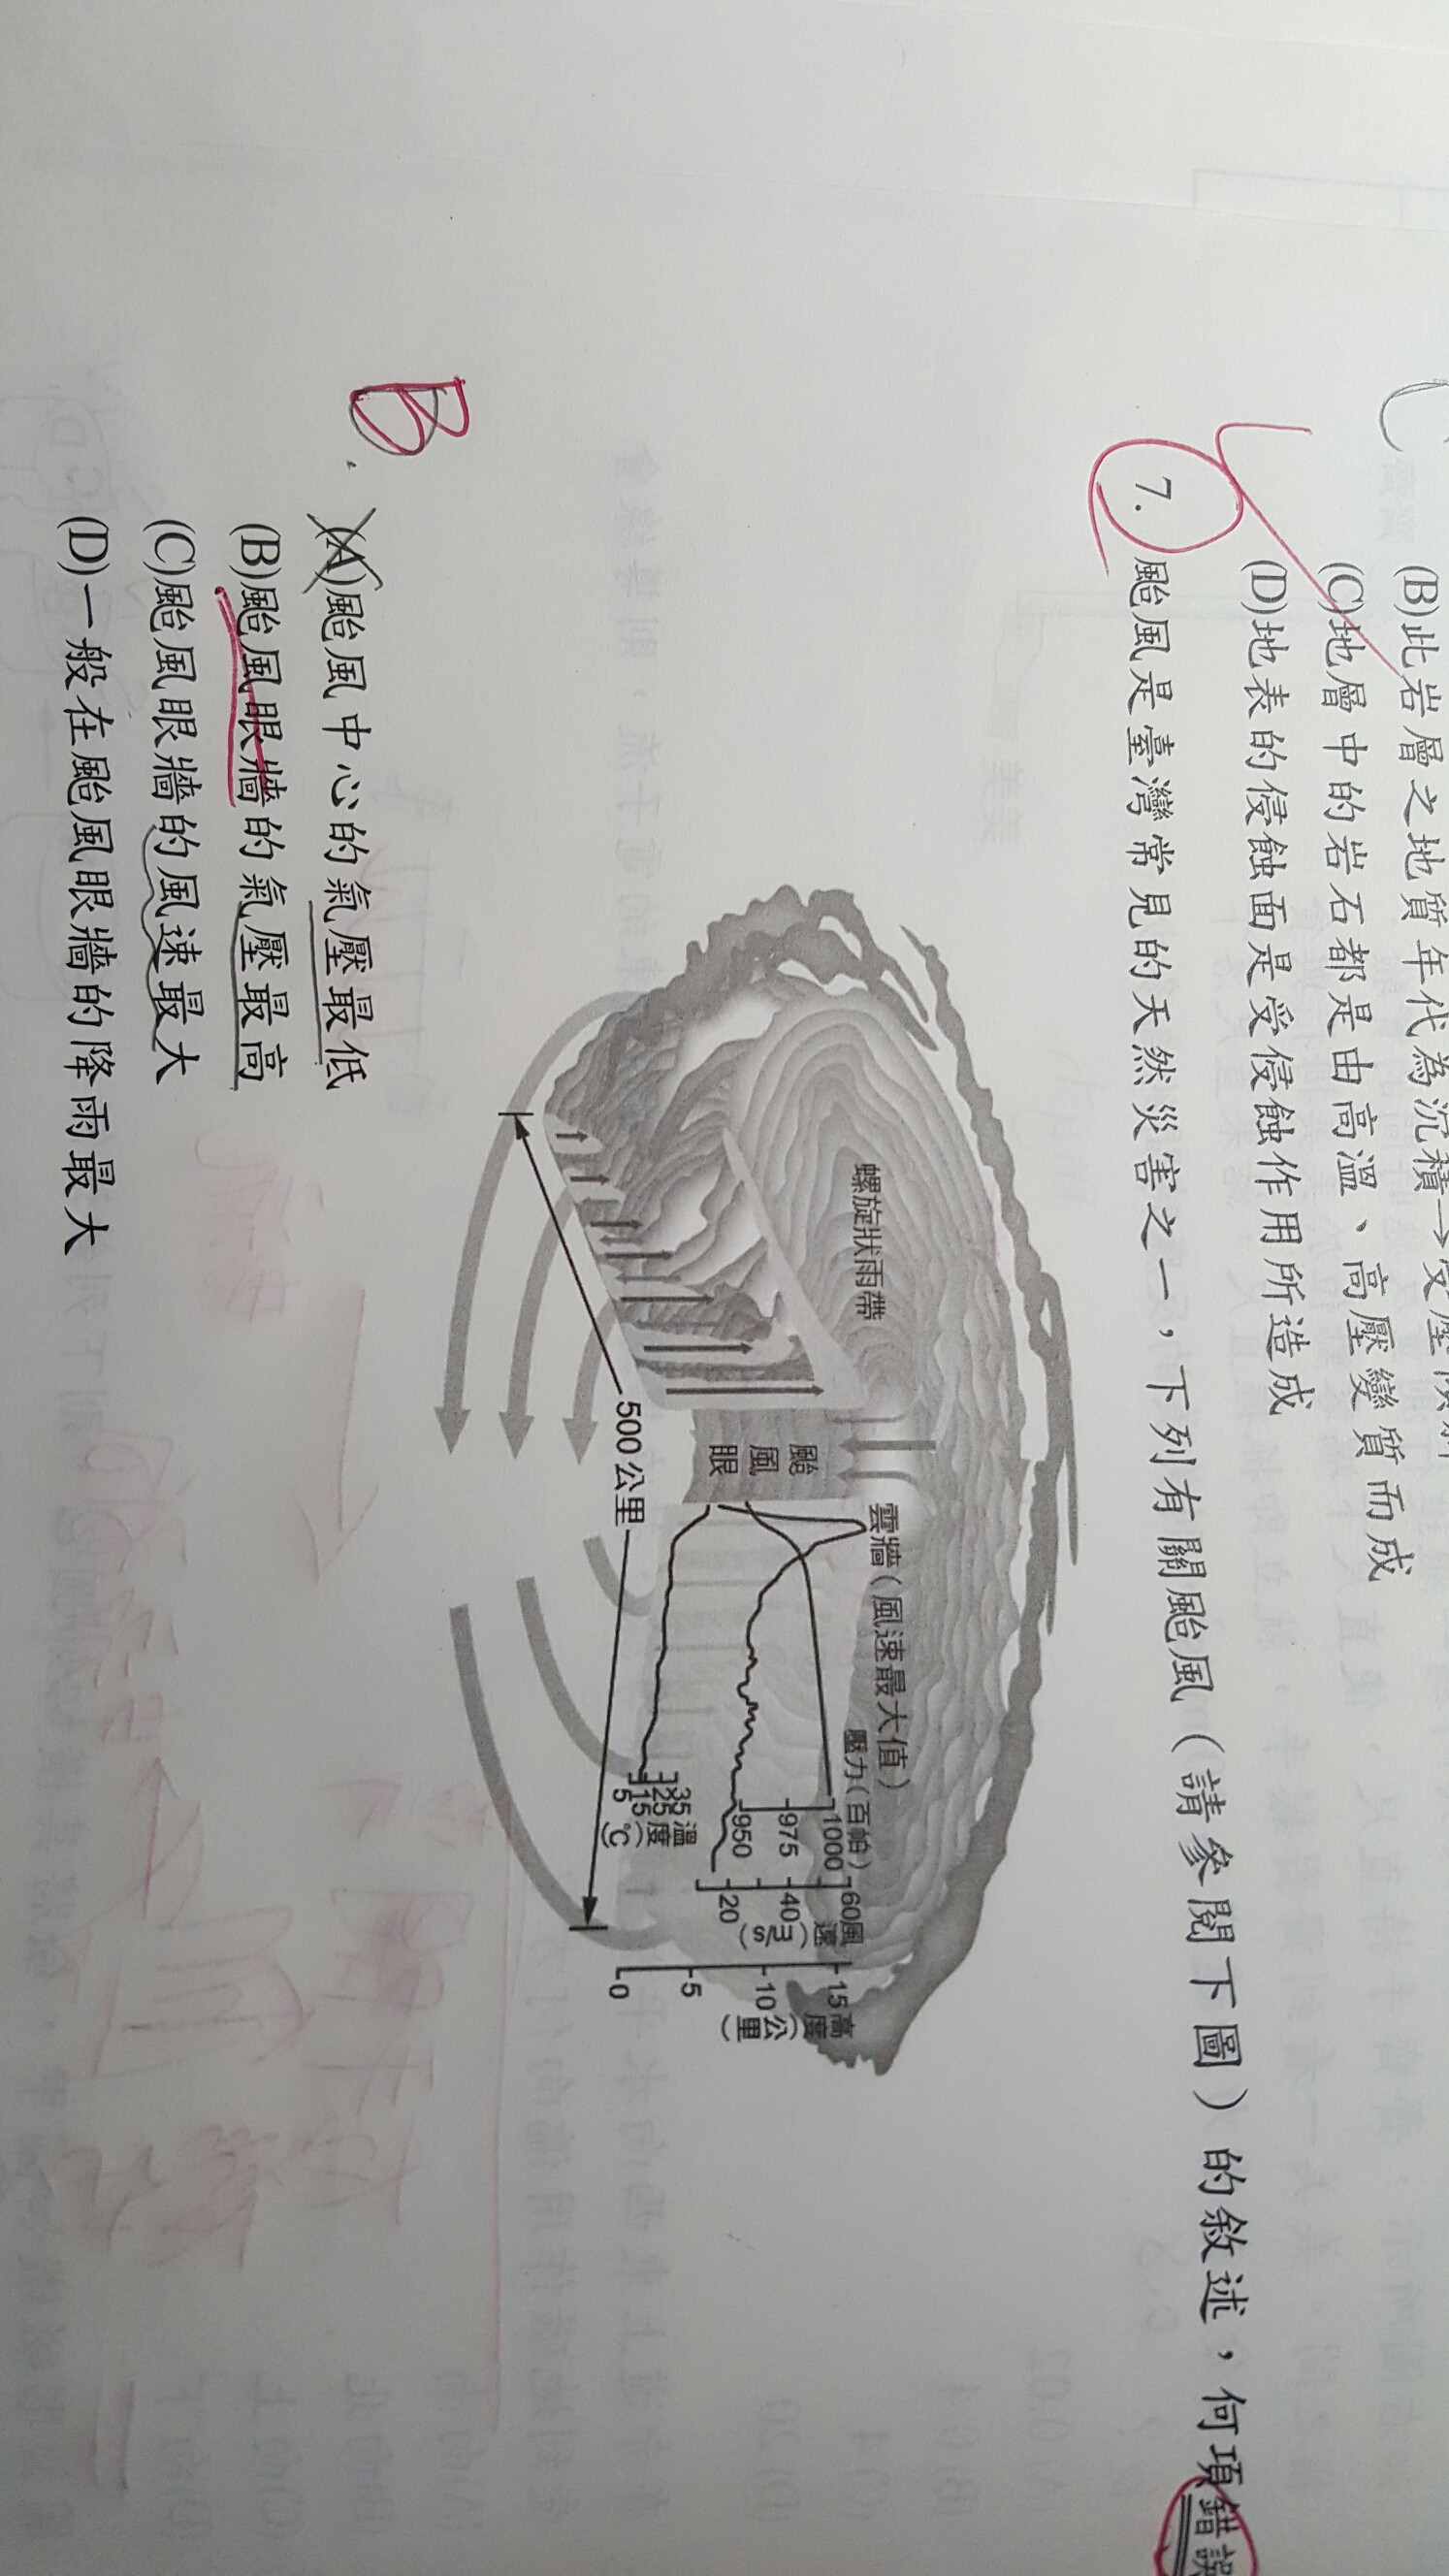 (B)此岩層之地質年代為沉積→
(C)地層中的岩石都是由高溫、高壓變質而成
(D)地表的侵蝕面是受侵蝕作用所造成
7. 颱風是臺灣常見的天然災害之一,下列有關颱風(請參閱下圖)的敘述,何項錯誤
螺旋狀雨帶
颱風眼
雲牆(風速最大值)
壓力(百帕)
1000
975
950
60
40
20
風速(m/s)
15
10
5
0
高度(公里)
35
25
15
5
溫度(℃)
500 公里
B
(A)颱風中心的氣壓最低
(B)颱風眼牆的氣壓最高
(C)颱風眼牆的風速最大
(D)一般在颱風眼牆的降雨最大